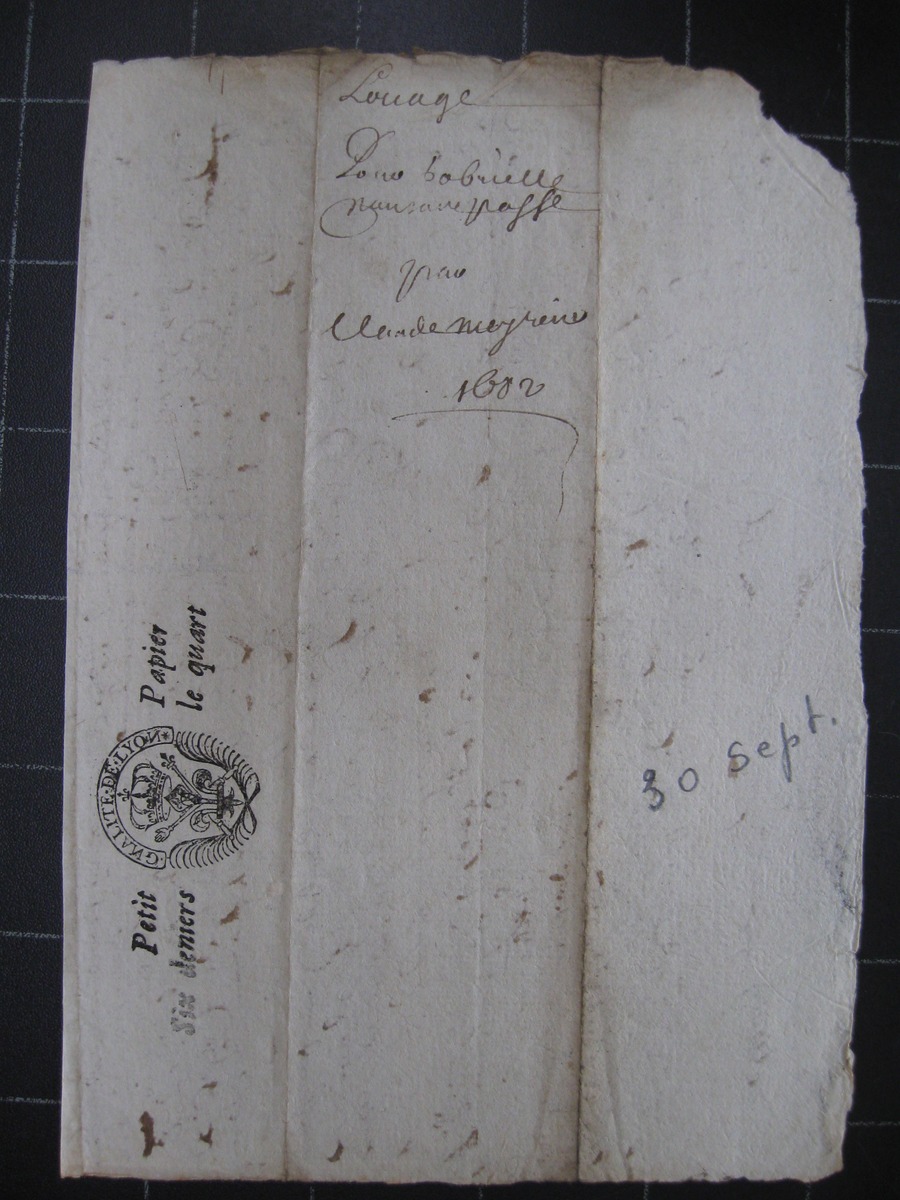 Louage
Pour Gabrielle
passé
par
Claude
1682
Petit Papier
Six deniers le quart
GNALITE·DE·LYON
30 Sept.